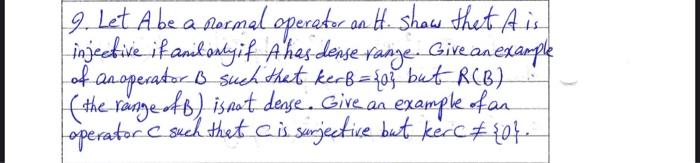 9. Let A be a normal operator on H. Show thet A is
injective if and only if A has dense range. Give an example
of an operator B such thet kerB = {0} but R(B)
(the range of B) is not dense. Give an example of an
operator C such that C is surjective but kerC ≠ {0}.